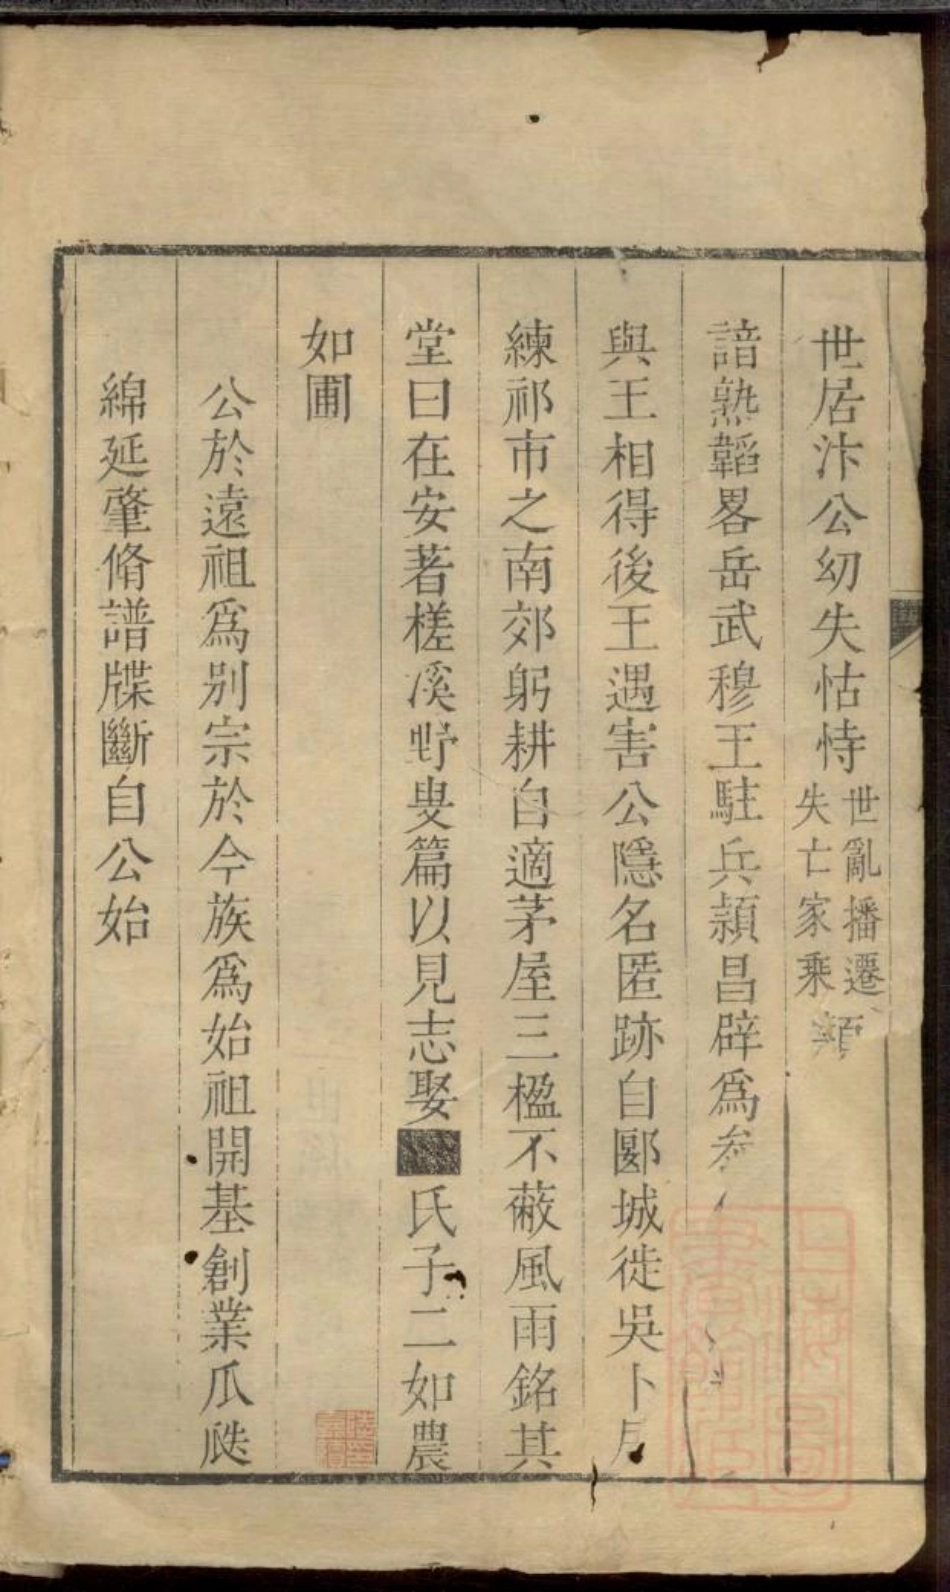 世居汴公幼失怙恃世亂播遷失亡家乘穎
諳熟韜畧岳武穆王駐兵潁昌辟爲參
與王相得後王遇害公隱名匿跡自郾城徙吳卜居
練祁市之南郊躬耕自適茅屋三楹不蔽風雨銘其
堂曰在安著槎溪野叟篇以見志娶氏子二如農
如圃
公於遠祖爲別宗於今族爲始祖開基創業瓜瓞
綿延肇脩譜牒斷自公始